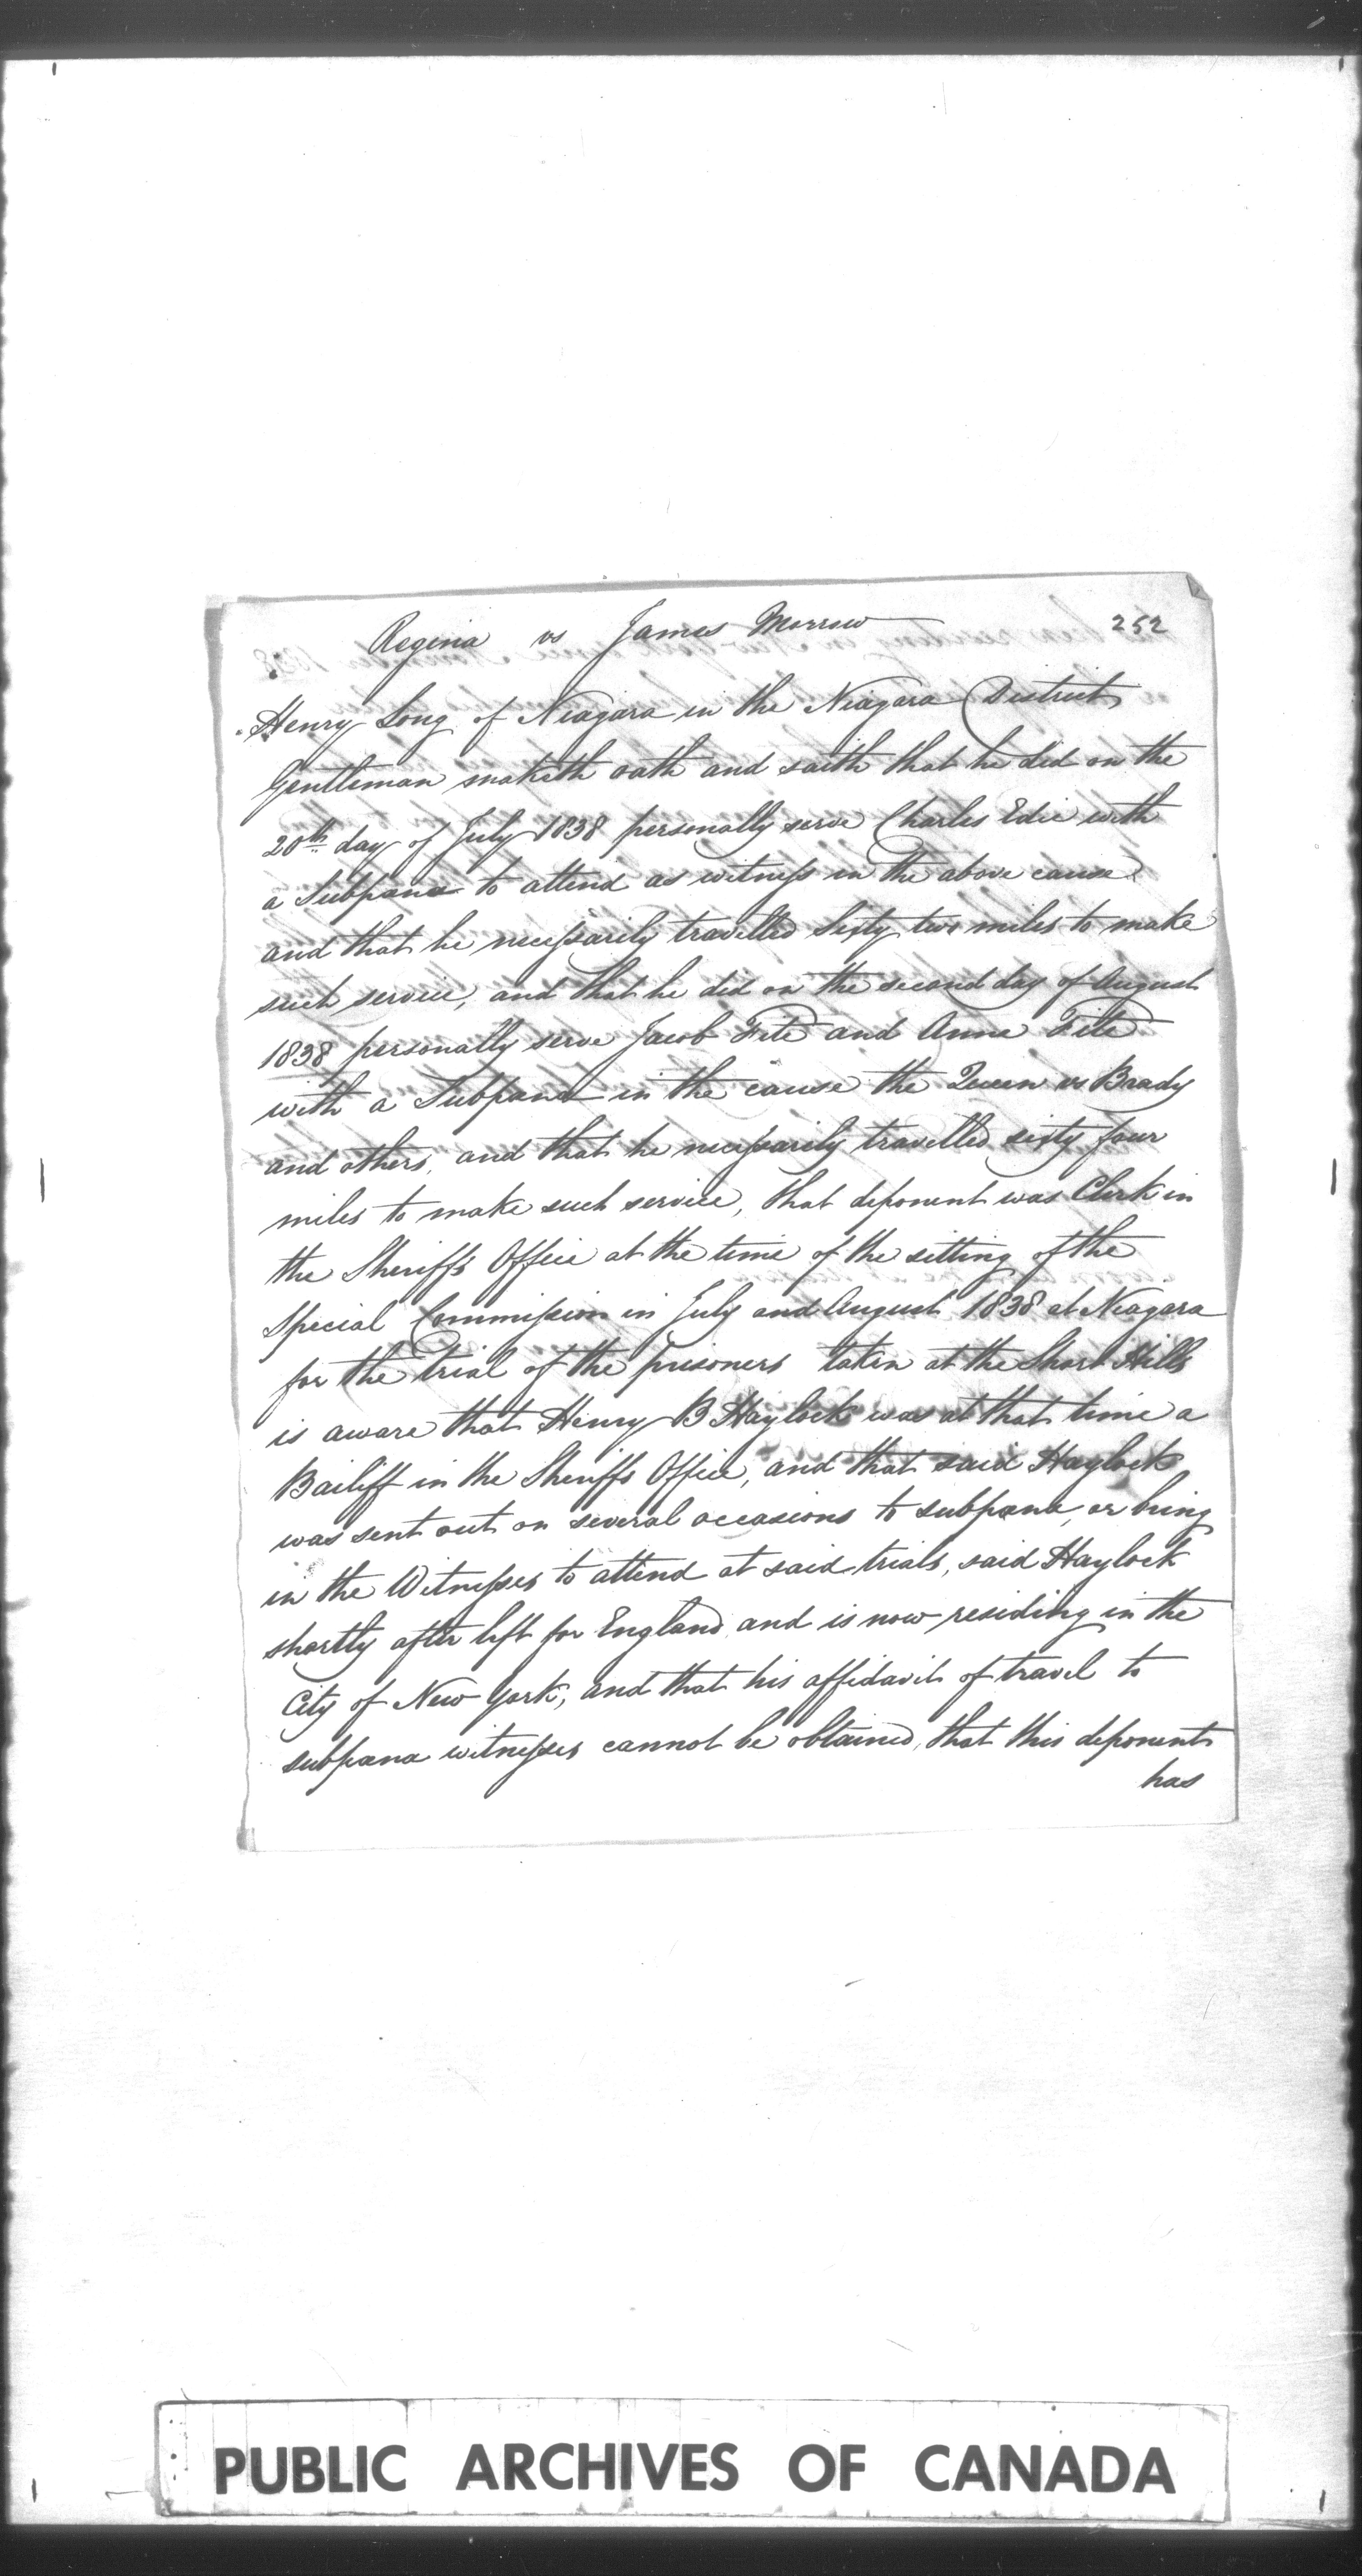 Regina vs James Morrow 252
Henry Long of Niagara in the Niagara District
Gentleman maketh oath and saith that he did on the
20th day of July 1838 personally serve Charles Edie with
a Subpæna to attend as witness in the above cause
and that he necessarily travelled Sixty two miles to make
such service, and that he did on the second day of August
1838 personally serve Jacob Fite and Anne Fite
with a Subpæna in the cause the Queen vs Beady
and others, and that he necessarily travelled sixty four
miles to make such service, that deponent was Clerk in
the Sheriffs Office at the time of the sitting of the
Special Commission in July and August 1838 at Niagara
for the trial of the prisoners taken at the Short Hills
is aware that Henry B Haylock was at that time a
Bailiff in the Sheriffs Office, and that said Haylock
was sent out on several occasions to subpæna, or bring
in the Witnesses to attend at said trials, said Haylock
shortly after left for England and is now residing in the
City of New York, and that his affidavit of travel to
subpæna witnesses cannot be obtained, that this deponent
has
PUBLIC ARCHIVES OF CANADA